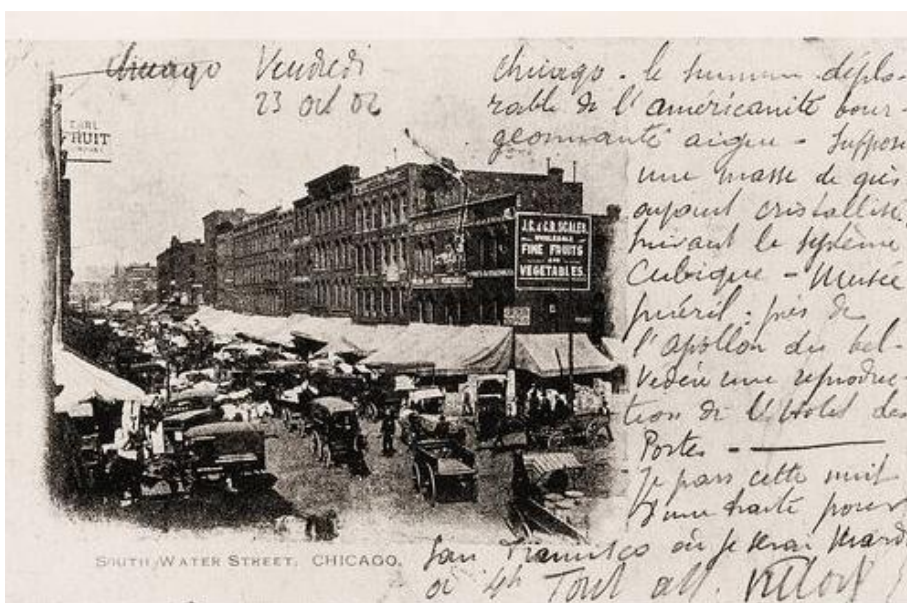 Chicago Vendredi
23 oct 02
Chicago. le summum déplo-
rable de l'américanité bour-
geonnante aigue - Suppose
une masse de grès
ayant cristallisé
suivant le système
Cubique - Musée
puéril : près de
l'apollon du bel-
vedère une reproduc-
tion de l'
Portes -
Je pars cette nuit
d'une traite pour
San Francisco où je serai Mardi
à 4h Tout aff.
EARL
FRUIT
J.C. & G.B. SCALES
WHOLESALE
FINE FRUITS
AND
VEGETABLES.
SOUTH WATER STREET, CHICAGO.